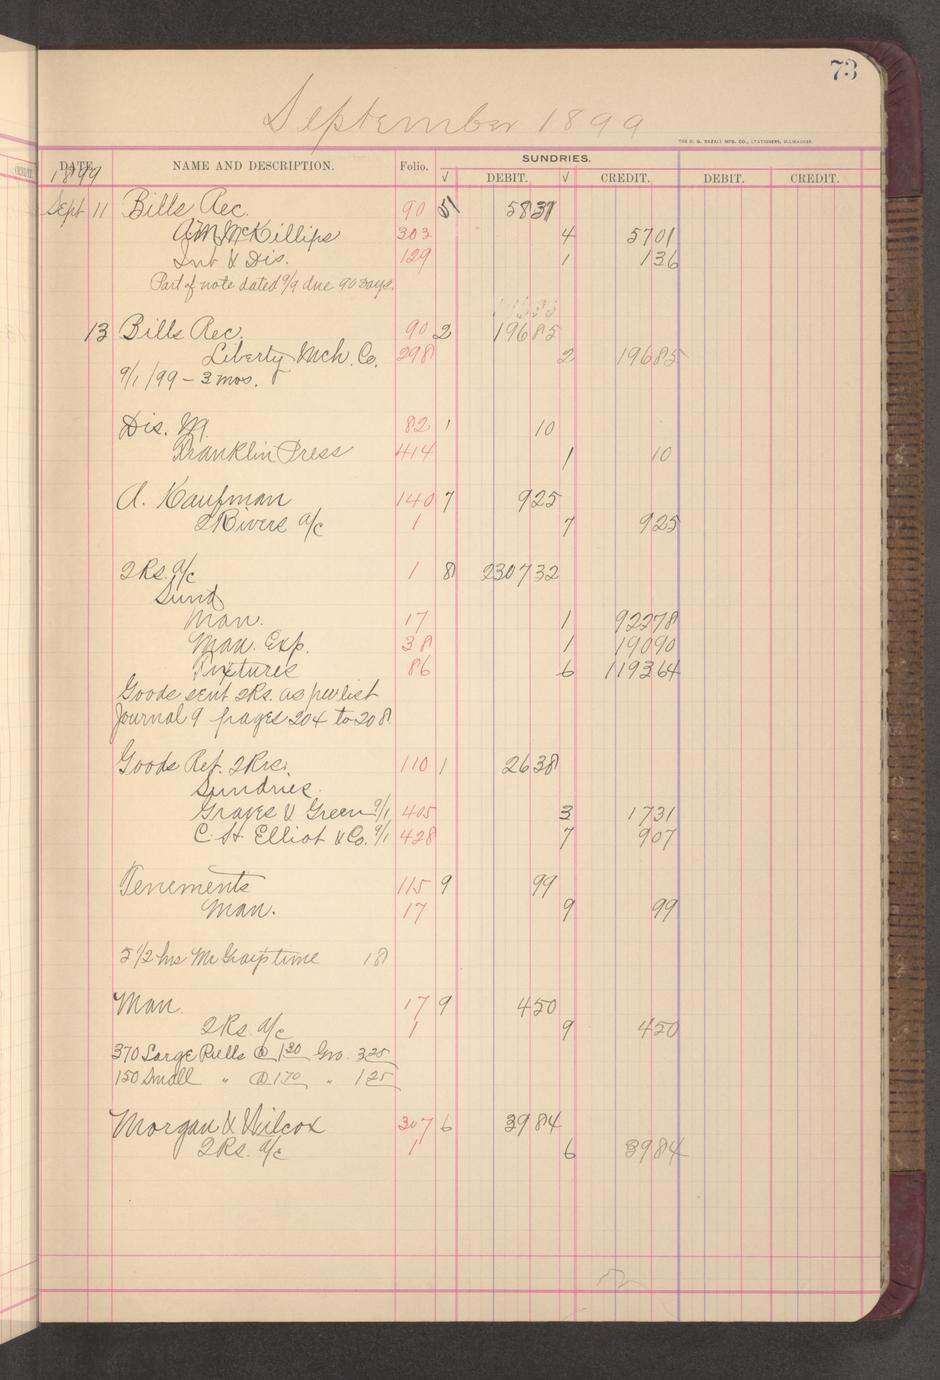 73
September 1899
THE H. G. RAZALL MFG. CO., STATIONERS, MILWAUKEE.
DATE. NAME AND DESCRIPTION. Folio. SUNDRIES.
√ DEBIT. √ CREDIT. DEBIT. CREDIT.
1899
Sept 11 Bills Rec. 90 51 5837
A M McKillips 303 4 5701
Int & Dis. 129 1 136
Part of note dated 9/9 due 90 days.
13 Bills Rec. 90 2 19685
Liberty Mch. Co. 298 2 19685
9/1/99 - 3 mos.
Dis. M. 82 1 10
Franklin Press 414 1 10
A. Kaufman 140 7 925
2 Rivers a/c 1 7 925
2 Rs. a/c 1 8 230732
Sund
Man. 17 1 92278
Man. Exp. 38 1 19090
Fixtures 86 6 119364
Goods sent 2Rs. as per list
Journal 9 pages 204 to 208
Goods Ret. 2Rs. 110 1 2638
Sundries
Graves & Green 9/1 405 3 1731
C. H. Elliot & Co. 9/1 428 7 907
Tenements 115 9 99
Man. 17 9 99
5 1/2 hrs time 18
Man. 17 9 450
2Rs. a/c 1 9 450
370 Large Pulls @ 1 30 Gro. 325
150 Small " @ 1 20 " 125
Morgan & Wilcox 307 6 3984
2Rs. a/c 1 6 3984